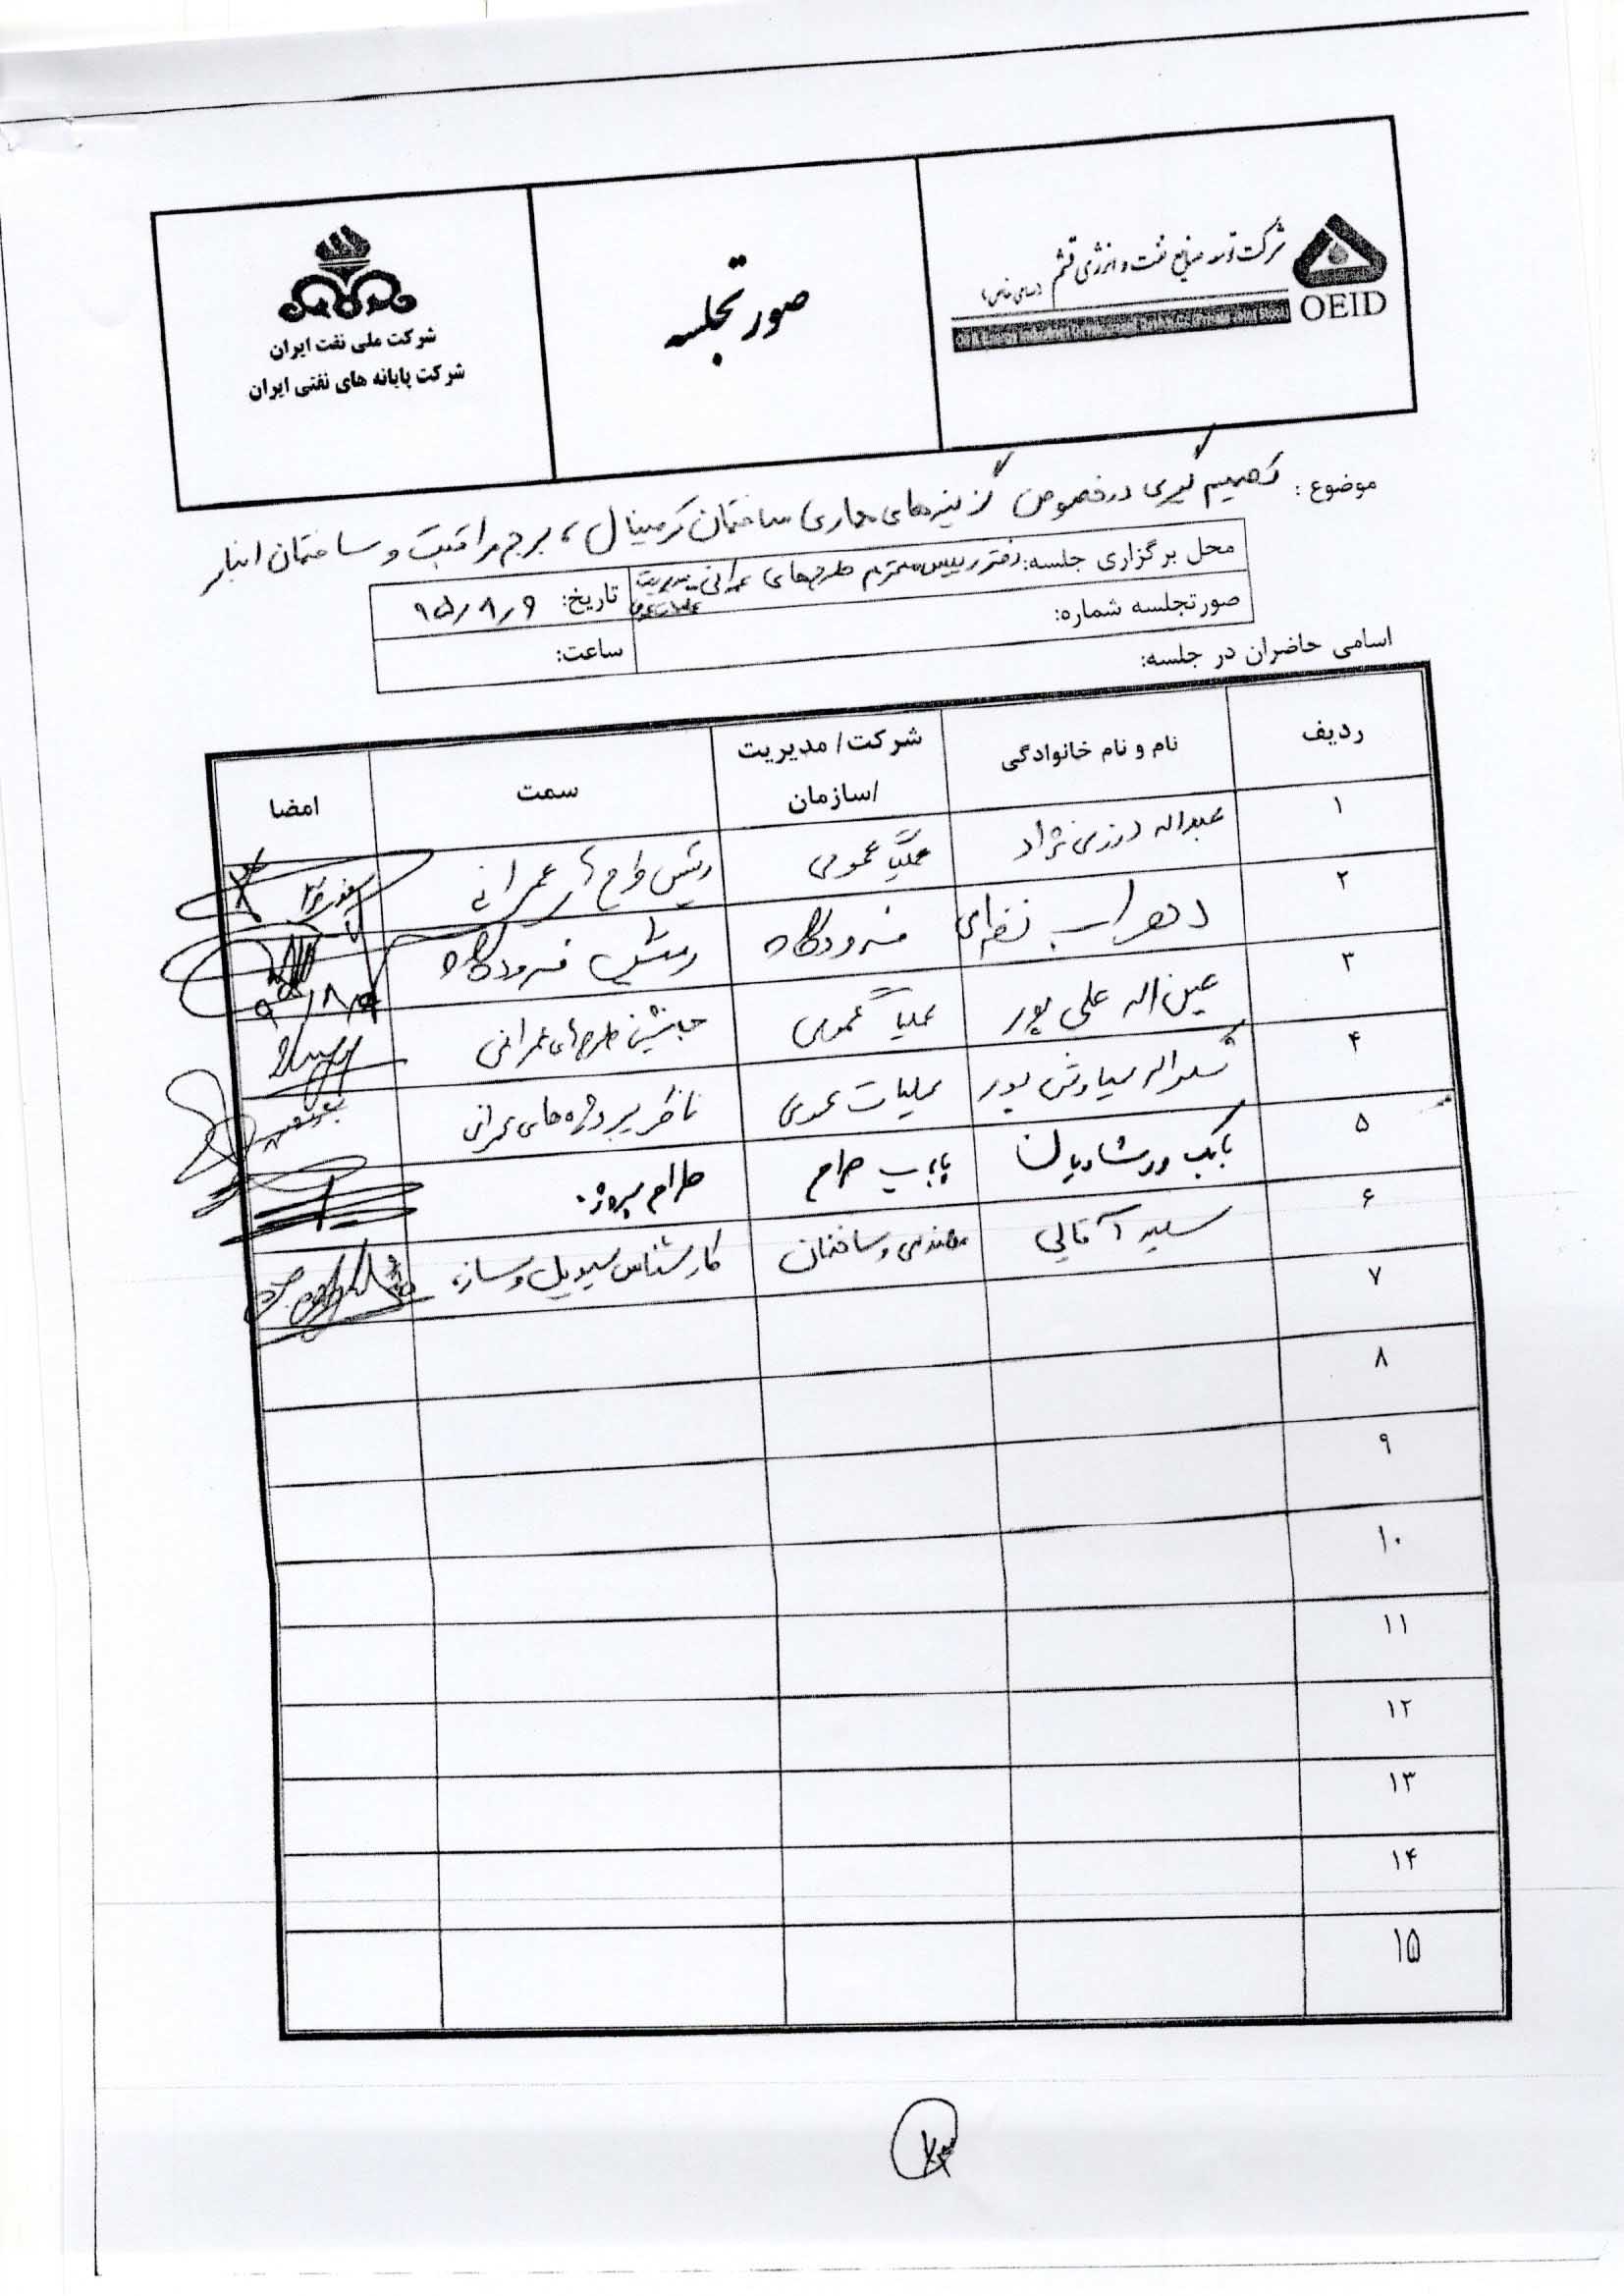 شرکت توسعه صنایع نفت و انرژی قشم
(سهامی خاص)
OEID
صورتجلسه
شرکت ملی نفت ایران
شرکت پایانه های نفتی ایران
موضوع: تصمیم گیری در خصوص گزینه های معماری ساختمان ترمینال، برج مراقبت و ساختمان انبار
محل برگزاری جلسه: دفتر رییس محترم طرحهای عمرانی مدیریت عملیات عمومی
تاریخ: ۹۵/۸/۹
صورتجلسه شماره:
ساعت:
اسامی حاضران در جلسه:
ردیف نام و نام خانوادگی شرکت/ مدیریت /سازمان سمت امضا
۱ عبداله درزی نژاد عملیات عمومی رئیس طرح های عمرانی
۲ فرودگاه رئیس فرودگاه
۳ عین اله علی پور عملیات عمومی جانشین طرحهای عمرانی
۴ سیاوش پور عملیات عمومی ناظر پروژه های عمرانی
۵ بابک ورشاویان طراح طراح پروژه
۶ سعید آقایی مهندسی و ساختمان کارشناس سیویل و سازه
۷
۸
۹
۱۰
۱۱
۱۲
۱۳
۱۴
۱۵